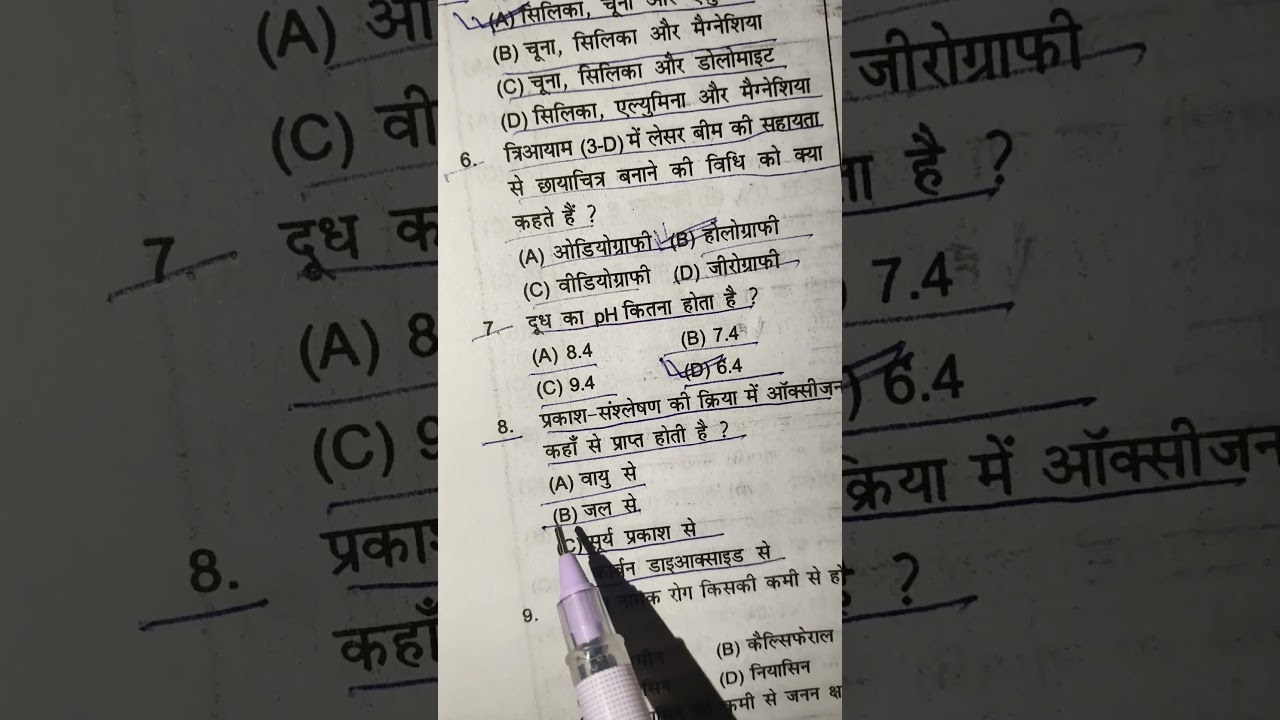 (A) सिलिका, चूना और
(B) चूना, सिलिका और मैग्नेशिया
(C) चूना, सिलिका और डोलोमाइट
(D) सिलिका, एल्युमिना और मैग्नेशिया
6. त्रिआयाम (3-D) में लेसर बीम की सहायता
से छायाचित्र बनाने की विधि को क्या
कहते हैं ?
(A) ओडियोग्राफी (B) होलोग्राफी
(C) वीडियोग्राफी (D) जीरोग्राफी
7. दूध का pH कितना होता है ?
(A) 8.4 (B) 7.4
(C) 9.4 (D) 6.4
8. प्रकाश-संश्लेषण की क्रिया में ऑक्सीजन
कहाँ से प्राप्त होती है ?
(A) वायु से
(B) जल से
(C) सूर्य प्रकाश से
डाइआक्साइड से
9. रोग किसकी कमी से
(B) कैल्सिफेराल
(D) नियासिन
कमी से जनन